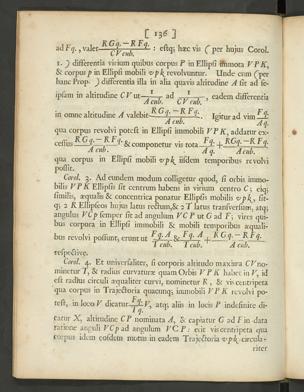 [ 136 ]
ad Fq., valet RGq. − RFq. / CV cub. : estq; hæc vis ( per hujus Corol.
1. ) differentia virium quibus corpus P in Ellipsi immota VPK,
& corpus p in Ellipsi mobili upk revolvuntur. Unde cum ( per
hanc Prop. ) differentia illa in alia quavis altitudine A sit ad se-
ipsam in altitudine CV ut 1 / A cub. ad 1 / CV cub., eadem differentia
in omne altitudine A valebit RGq. − RFq. / A cub. Igitur ad vim Fq. / Aq.
qua corpus revolvi potest in Ellipsi immobili VPK, addatur ex-
cessus RGq. − RFq. / A cub. & componetur vis tota Fq. / Aq. + RGq. − RFq. / A cub.
qua corpus in Ellipsi mobili upk iisdem temporibus revolvi
possit.
Corol. 3. Ad eundem modum colligetur quod, si orbis immo-
bilis VPK Ellipsis sit centrum habens in virium centro C; eiq;
similis, æqualis & concentrica ponatur Ellipsis mobilis upk, sit-
q; 2 R Ellipseos hujus latus rectum, & 2 T latus transversum, atq;
angulus VCp semper sit ad angulum VCP ut G ad F; vires qui-
bus corpora in Ellipsi immobili & mobili temporibus æquali-
bus revolvi possunt, erunt ut Fq. A / T cub. & Fq. A / T cub. + RGq. − RFq. / A cub.
respective.
Corol. 4. Et universaliter, si corporis altitudo maxima CV no-
minetur T, & radius curvaturæ quam Orbis VPK habet in V, id
est radius circuli æqualiter curvi, nominetur R, & vis centripeta
qua corpus in Trajectoria quacunq; immobili VPK revolvi po-
test, in loco V dicatur Fq. / Tq. V, atq; aliis in locis P indefinite di-
catur X, altitudine CP nominata A, & capiatur G ad F in data
ratione anguli VCp ad angulum VCP: erit vis centripeta qua
corpus idem eosdem motus in eadem Trajectoria upk circula-
riter